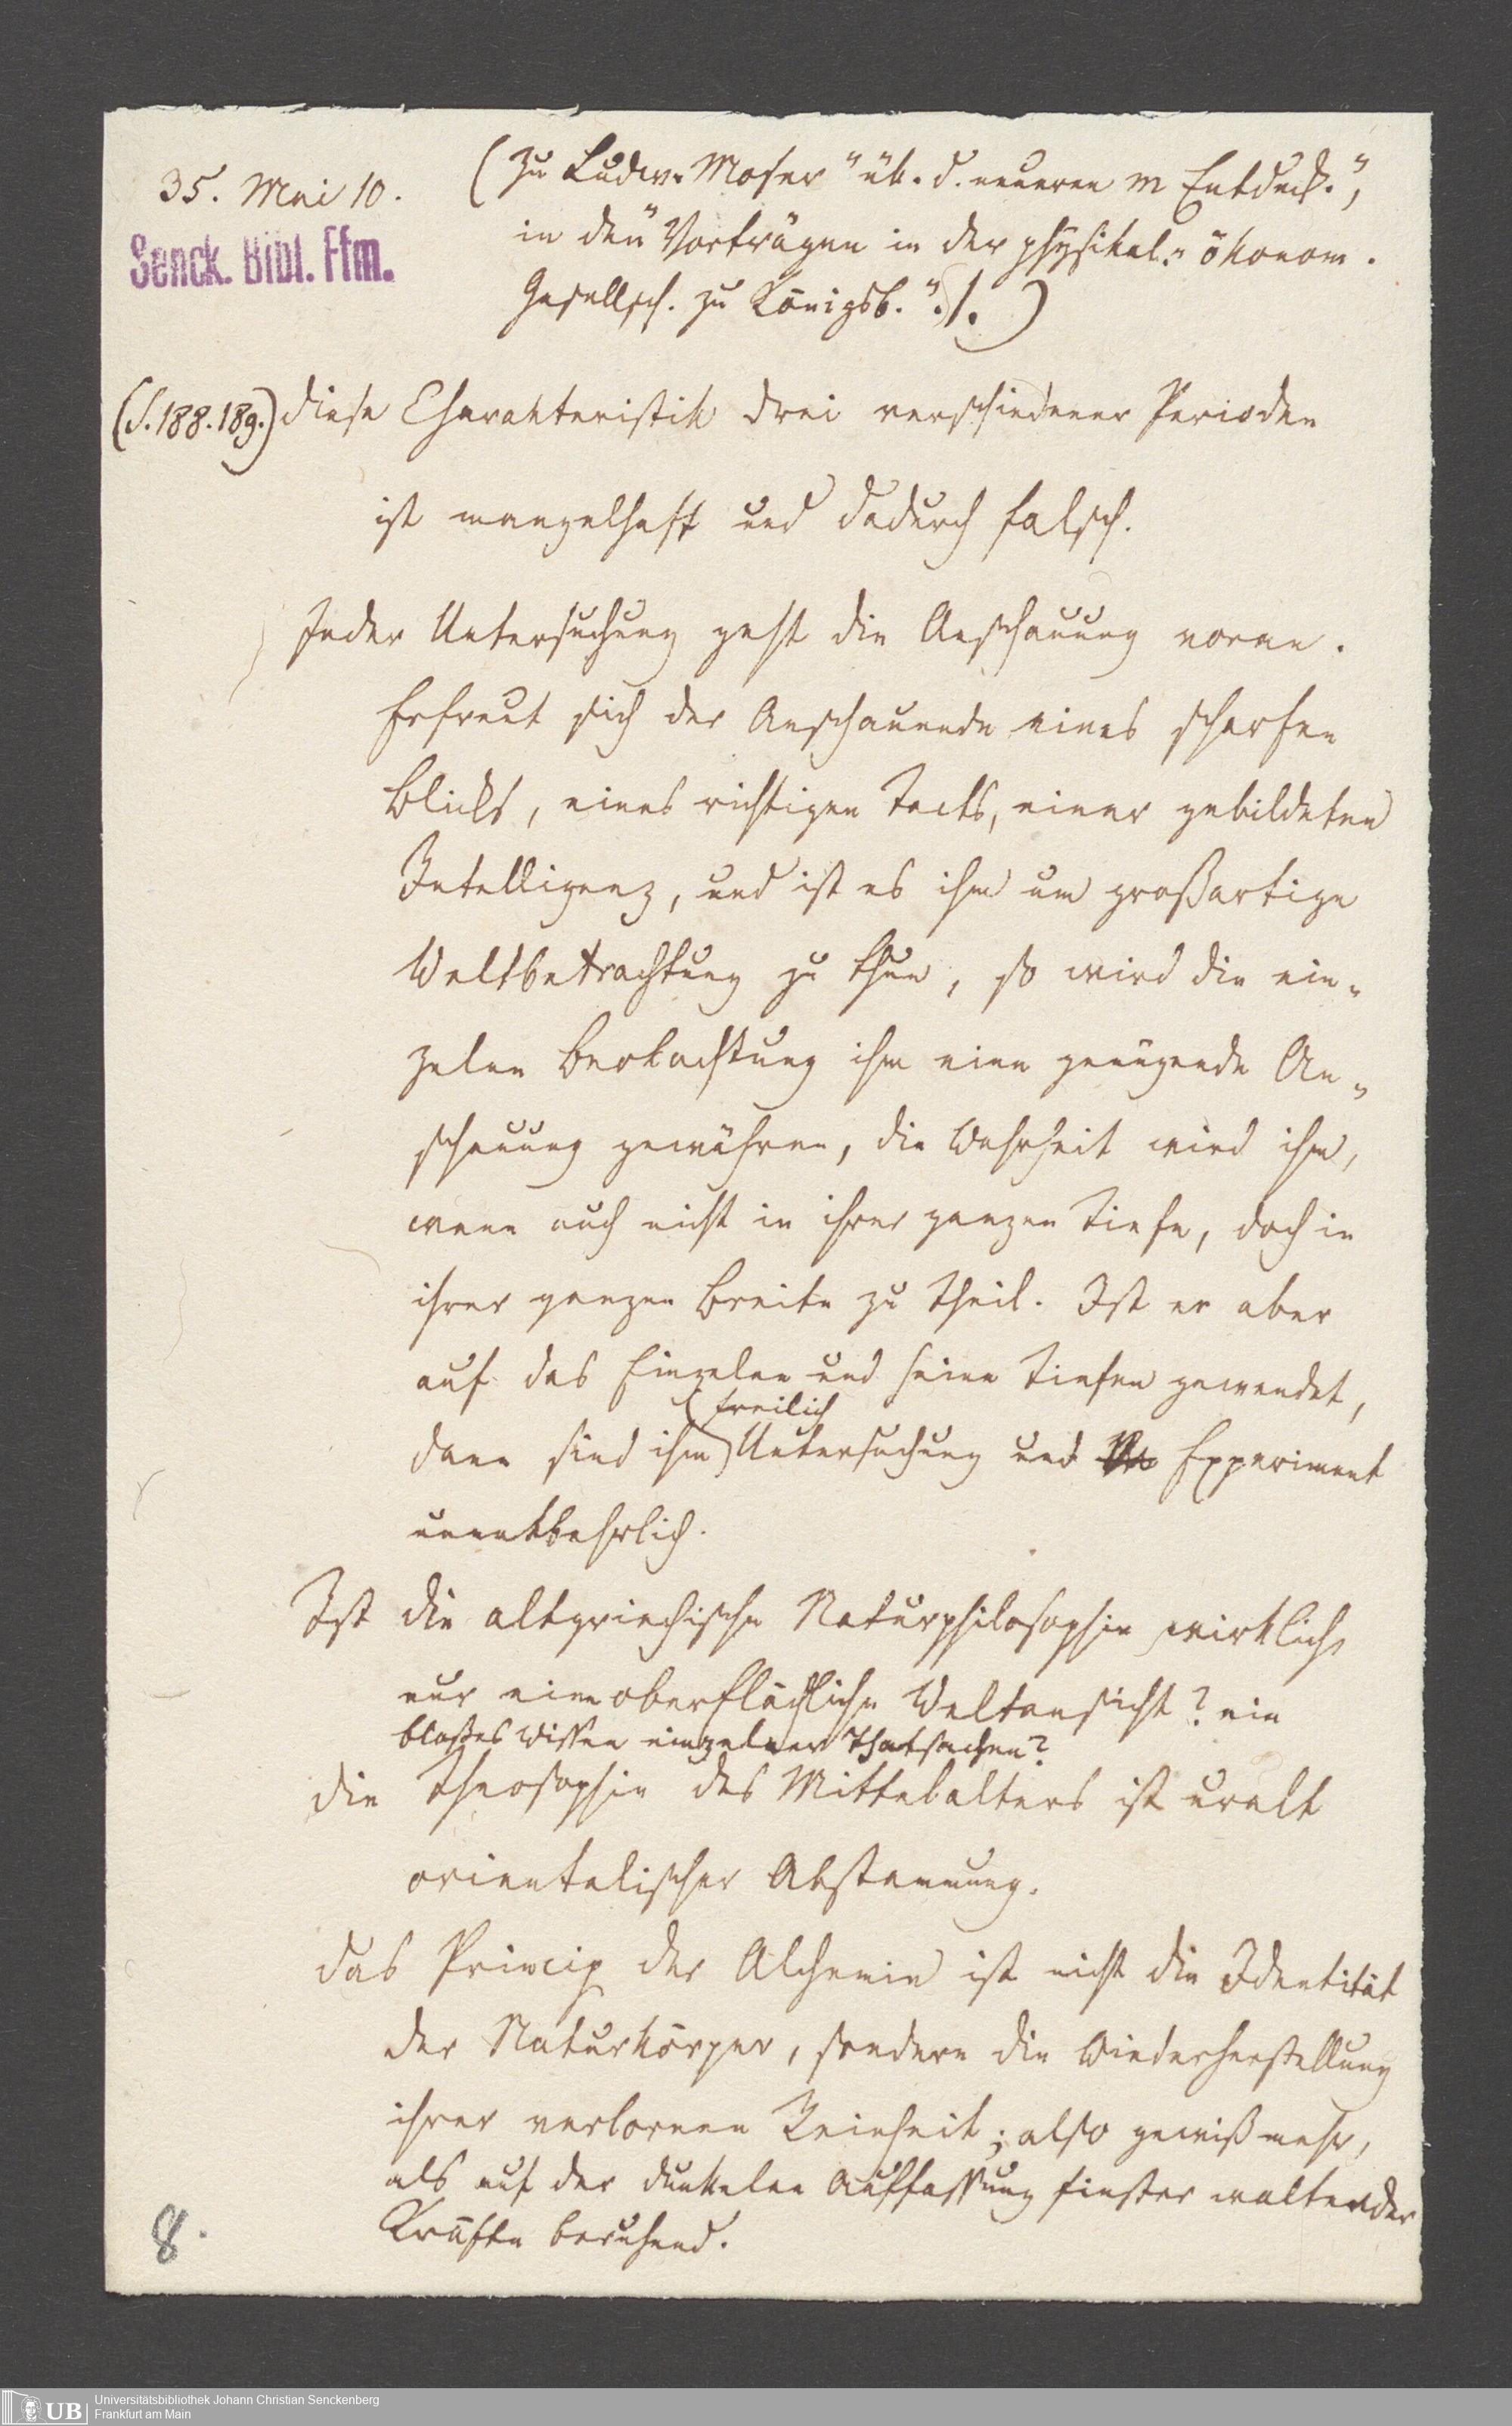 35. Mai 10.
(Zu Ludw. Moser "üb. d. neueren m Entdeck.",
in den "Vorträgen in der physikal.-ökonom.
Gesellsch. zu Königsb.")./.)
Senck. Bibl. Ffm.
(S. 188. 189.) diese Charakteristik drei verschiedener Perioden
ist mangelhaft und dadurch falsch.
Jeder Untersuchung geht die Anschauung voran.
Erfreut sich der Anschauende eines scharfen
Blicks, eines richtigen Tacts, einer gebildeten
Intelligenz, und ist es ihm um großartige
Weltbetrachtung zu thun, so wird die ein-
zelne Beobachtung ihm eine genügende An-
schauung gewähren, die Wahrheit wird ihm,
wenn auch nicht in ihrer ganzen Tiefe, doch in
ihrer ganzen Breite zu Theil. Ist er aber
auf das Einzelne und seine Tiefen gewendet,
freilich
dann sind ihm Untersuchung und Experiment
unentbehrlich.
Ist die altgriechische Naturphilosophie wirklich
nur eine oberflächliche Weltansicht? ein
bloßes Wissen einzelner Thatsachen?
die Theosophie des Mittelalters ist uralt
orientalischer Abstammung.
das Princip der Alchemie ist nicht die Identität
der Naturkörper, sondern die Wiederherstellung
ihrer verlornen Reinheit; also gewiß mehr,
als auf der dunkelen Auffassung finster waltender
Kräfte beruhend.
8.
UB
Universitätsbibliothek Johann Christian Senckenberg
Frankfurt am Main